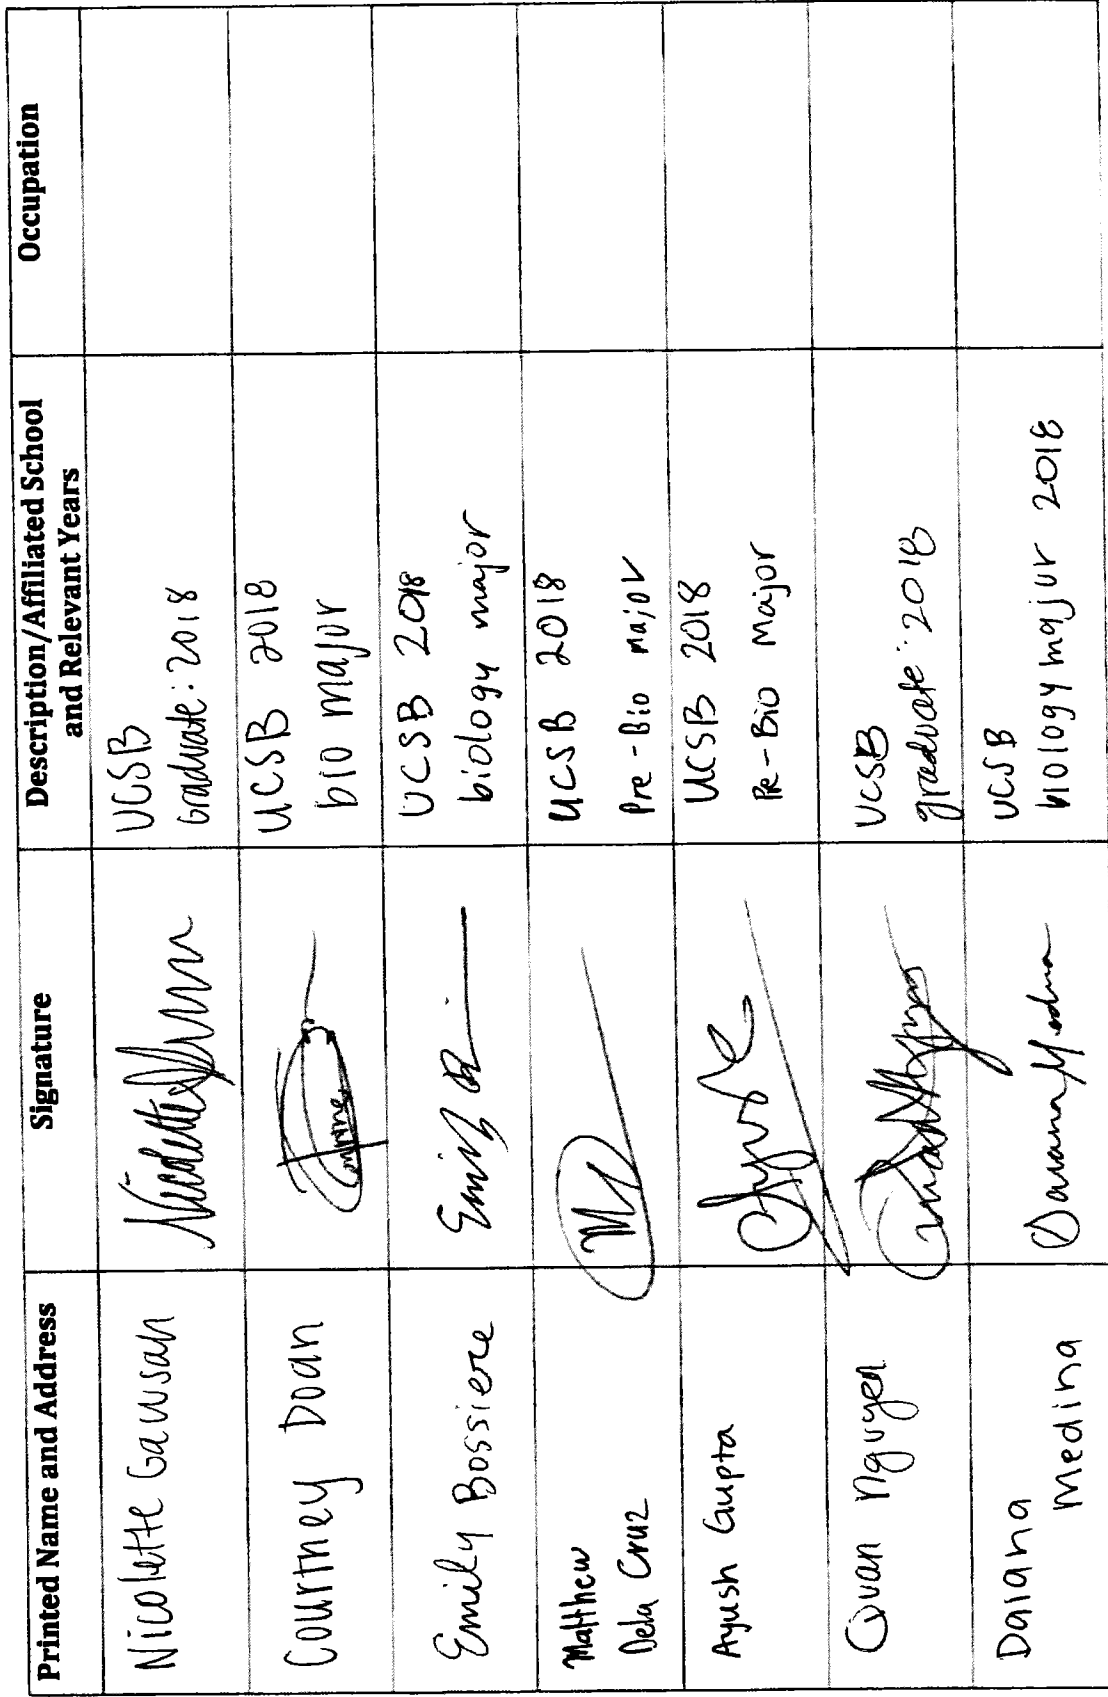 Printed Name and Address
Signature
Description/Affiliated School
and Relevant Years
Occupation
Nicolette Gawsah
UCSB
Graduate: 2018
Courtney Doan
UCSB 2018
bio major
Emily Bossiere
UCSB 2018
biology major
Matthew
Dela Cruz
UCSB 2018
Pre-Bio major
Ayush Gupta
UCSB 2018
Pre-Bio Major
Quan Nguyen
UCSB
graduate: 2018
Daiana
Medina
UCSB
biology major 2018